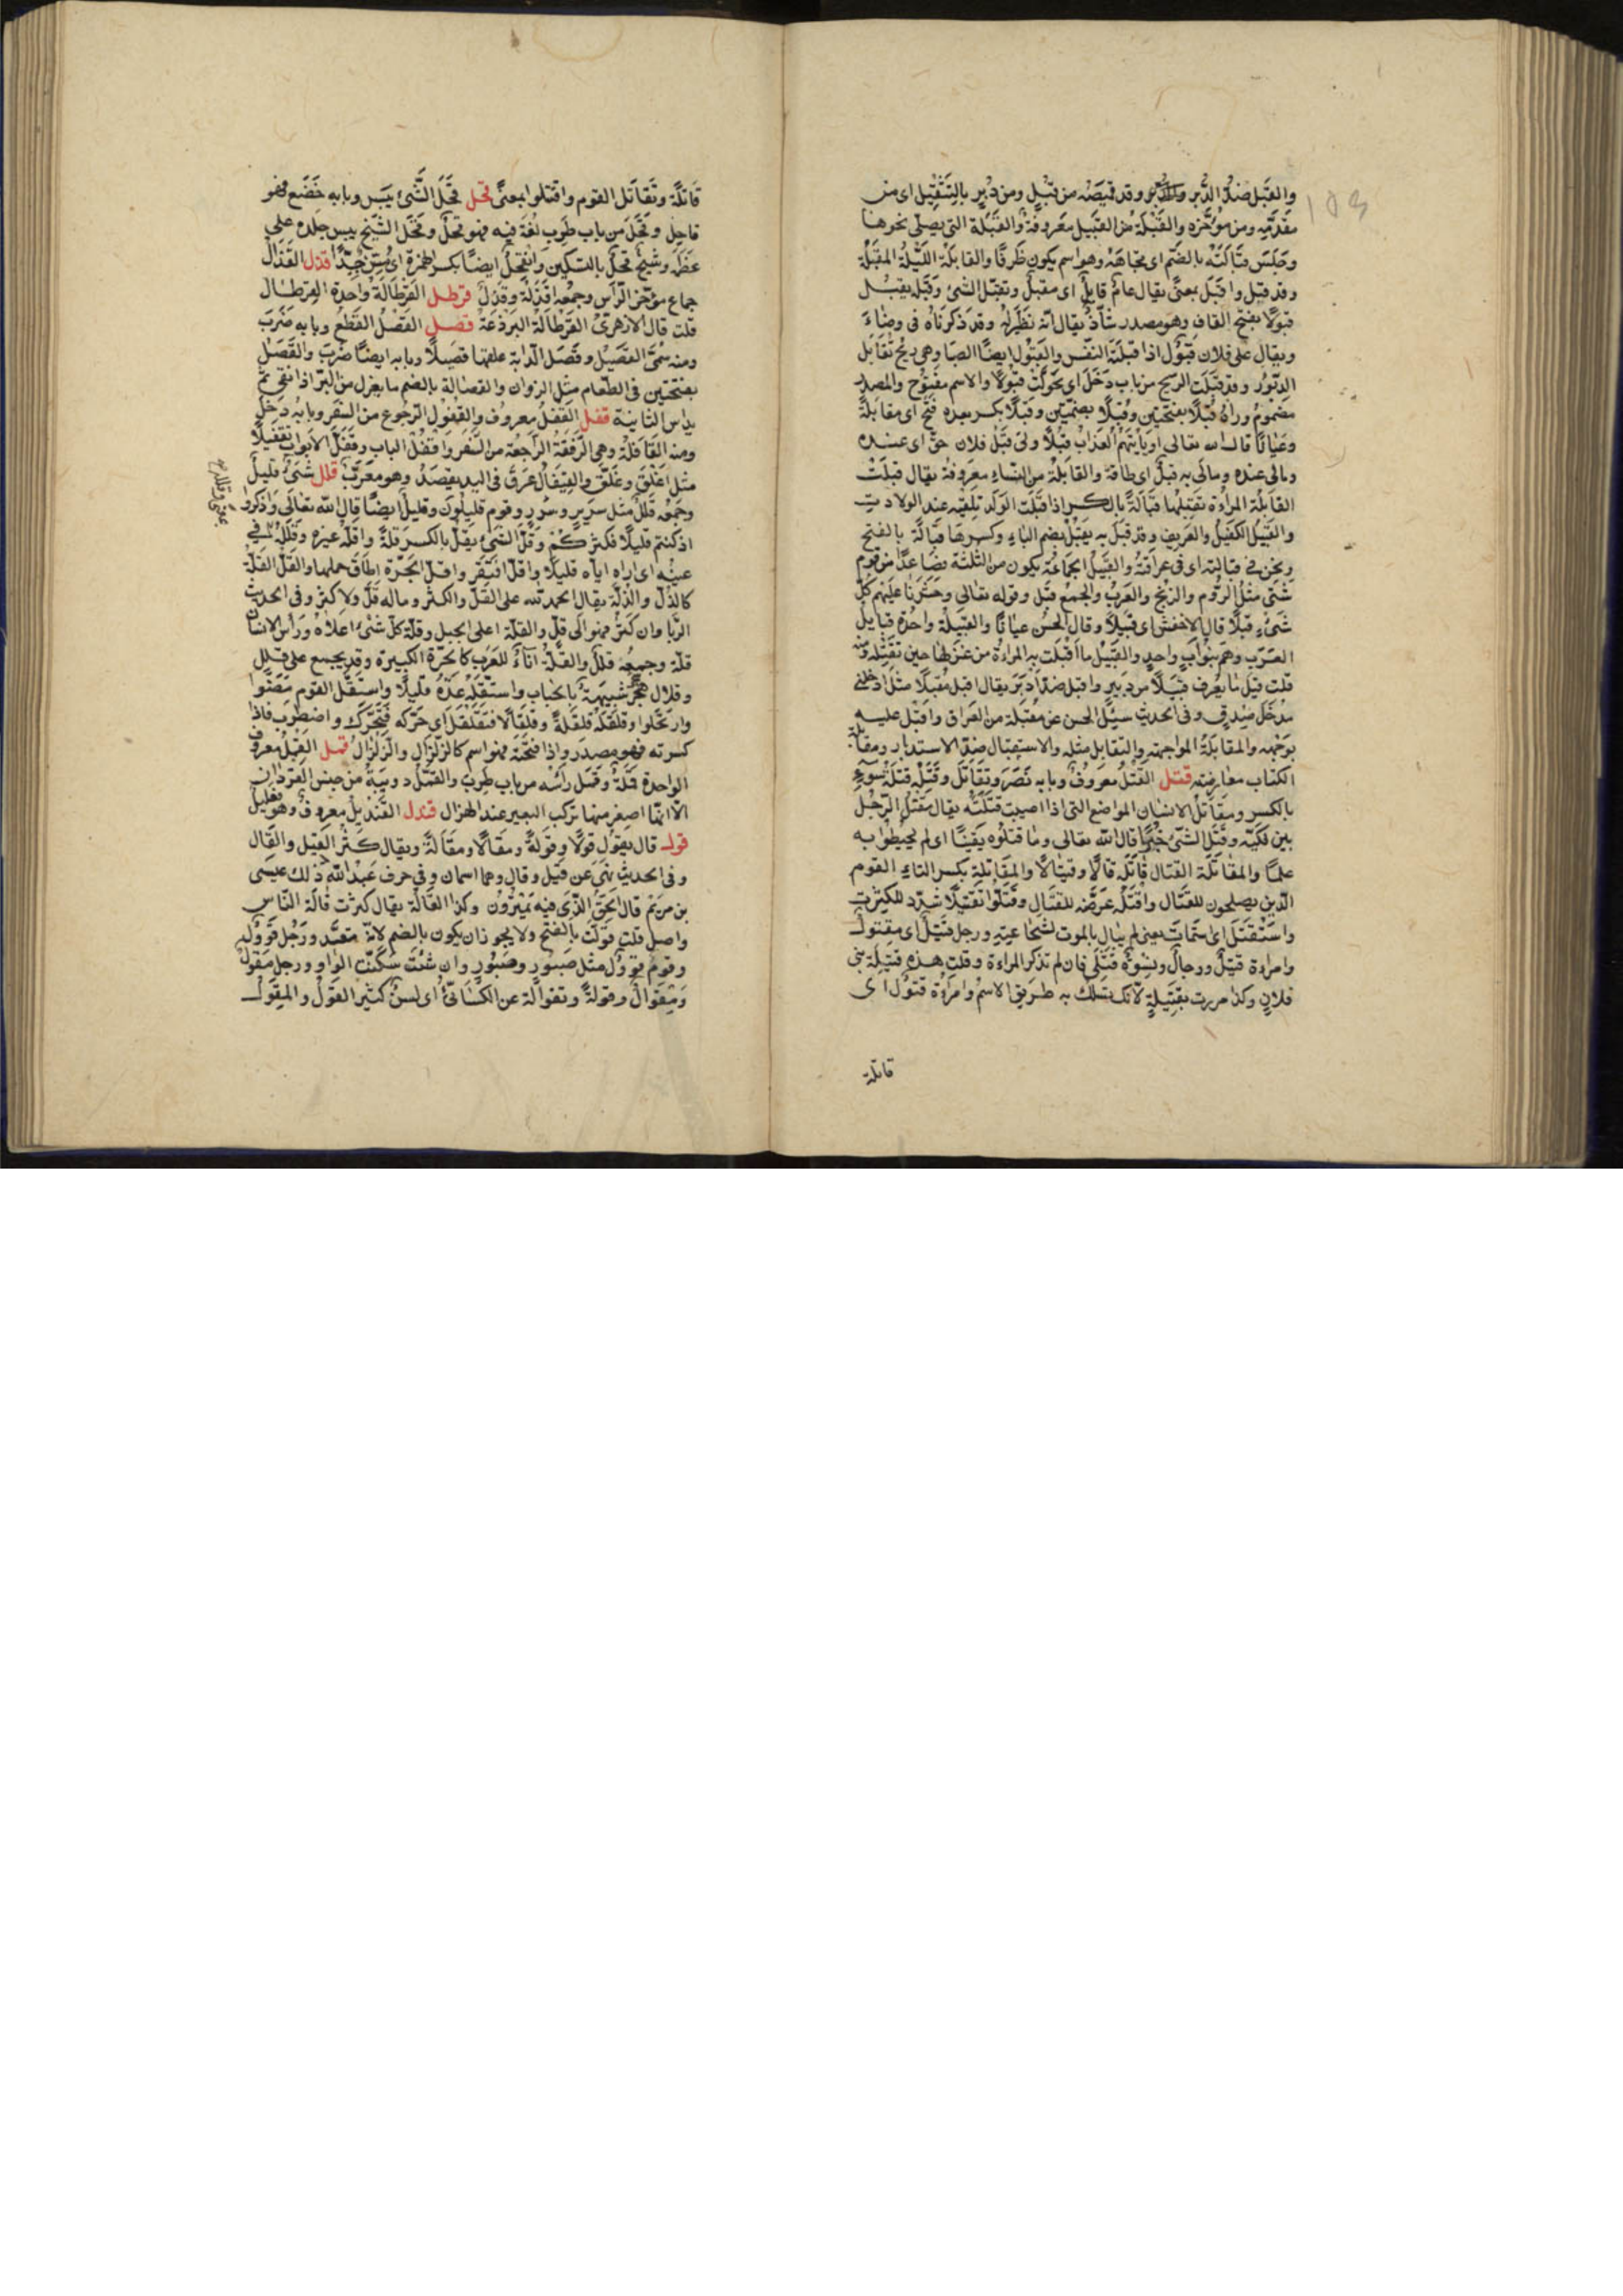 والقبل ضد الدبر والدبر وقد قميصه من قبل ومن دبر بالتثقيل اى من
مقدمه ومن مؤخره والقبلة من التقبيل معروفة والقبلة التى يصلى نحوها
وجلس قبالته بالضم اى تجاهه وهو اسم يكون ظرفا والقابلة الليلة المقبلة
وقد قبل واقبل بمعنى يقال عام قابل اى مقبل وتقبل الشئ وقبله يقبل
قبولا بفتح القاف وهو مصدر شاذ يقال انه نظير له وقد ذكرناه فى وضاء
ويقال على فلان قبول اذا قبلته النفس والقبول ايضا الصبا وهى ريح تقابل
الدبور وقد قبلت الريح من باب دخل اى تحولت قبولا والاسم مفتوح والمصدر
مضموم وراه قبلا بفتحتين وقبلا بضمتين وقبلا بكسر بعده فتح اى مقابلة
وعيانا قال الله تعالى او يأتيهم العذاب قبلا ولى قبل فلان حق اى عنده
ومالى عنده ومالى به قبل اى طاقة والقابلة من النساء معروفة يقال قبلت
القابلة المراءة تقبلها قبالة بالكسر اذا قبلت الولد تلقته عند الولادة
والقبيل الكفيل والعريف وقد قبل به يقبل بضم الباء وكسرها قبالة بالفتح
ونحن فى قبالته اى فى عرافته والقبيل الجماعة يكون من الثلثة فصاعدا من قوم
شتى مثل الروم والزنج والعرب والجمع قبل وقوله تعالى وحشرنا عليهم كل
شىء قبلا قال الاخفش اى قبيلا وقال الحسن عيانا والقبيلة واحدة قبايل
العرب وهم بنو اب واحد والقبيل ما اقبلت به المراءة من غزلها حين تفتله ومنه
قلت قيل ما يعرف قبيلا من دبير واقبل ضد ادبر يقال اقبل مقبلا مثل ادخلنى
مدخل صدق وفى الحديث سئل الحسن عن مقبله من العراق واقبل عليه
بوجهه والمقابلة المواجهة والتقابل مثله والاستقبال ضد الاستدبار ومقابلة
الكتاب معارضته قتل القتل معروف وبابه نصر وتقاتل وقتله قتلة سوء
بالكسر ومقاتل الانسان المواضع التى اذا اصيبت قتلته يقال مقتل الرجل
بين فكيه وقتل الشئ خبرا قال الله تعالى وما قتلوه يقينا اى لم يحيطوا به
علما والمقاتلة القتال قاتله قتالا وقيتالا والمقاتلة بكسر التاء القوم
الذين يصلحون للقتال واقتله عرضه للقتال وقتلوا تقتيلا شدد للكثرة
واستقتل اى استمات يعنى لم يبال بالموت لشجاعته ورجل قتيل اى مقتول
وامراءة قتيل ورجال ونسوة قتلى فان لم تذكر المراءة وقلت هذه قتيلة بنى
فلان وكذا مررت بقتيلة لانك تسلك به طريق الاسم وامراءة قتول اى
قاتلة
قاتلة وتقاتل القوم واقتتلوا بمعنى قحل قحل الشئ يبس وبابه خضع فهو
قاحل وقحل من باب طرب لغة فيه فهو قحل وقحل الشيخ يبس جلده على
عظمه وشيخ قحل بالتسكين وانقحل ايضا بكسر الهمزة اى مسن جدا قذل القذال
جماع مؤخر الراس وجمعه اقذلة وقذل قرطل القرطالة واحدة القرطال
قلت قال الازهرى القرطالة البرذعة قصل القصل القطع وبابه ضرب
ومنه سمى القصيل وقصل الدابة علفها قصيلا وبابه ايضا ضرب والقصل
بفتحتين فى الطعام مثل الزوان والقصالة بالضم ما يعزل من البر اذا نقى ثم
يداس الثانية قفل القفل معروف والقفول الرجوع من السفر وبابه دخل
ومنه القافلة وهى الرفقة الراجعة من السفر واقفل الباب وقفل الابواب تقفيلا
مثل اغلق وغلق والقيفال عرق فى اليد يفصد وهو معرب قلل شئ قليل
وجمعه قلل مثل سرير وسرر وقوم قليلون وقليل ايضا قال الله تعالى واذكروا
اذ كنتم قليلا فكثركم وقل الشئ يقل بالكسر قلة واقله غيره وقلله فى
عينه اى اراه اياه قليلا واقل افتقر واقل الجرة اطاق حملها والقل القلة
كالذل والذلة يقال الحمد لله على القل والكثر وماله قل ولا كثر وفى الحديث
الربا وان كثر فهو الى قل والقلة اعلى الجبل وقلة كل شئ اعلاه وراس الانسان
قلة وجمعه قلل والقلة اناء للعرب كالجرة الكبيرة وقد يجمع على قلل
وقلال هجر شبيهة بالحباب واستقله عده قليلا واستقل القوم مضوا
وارتحلوا وقلقله قلقلة وقلقالا فتقلقل اى حركه فتحرك واضطرب فاذا
كسرته فهو مصدر واذا فتحته فهو اسم كالزلزال والزلزال قمل القمل معروف
الواحدة قملة وقمل راسه من باب طرب والقمل دويبة من جنس القردان
الا انها اصغر منها تركب البعير عند الهزال قندل القنديل معروف وهو فعليل
قول قال يقول قولا وقولة ومقالا ومقالة ويقال كثر القيل والقال
وفى الحديث نهى عن قيل وقال وهما اسمان وفى حرف عبد الله ذلك عيسى
بن مريم قال الحق الذى فيه يمترون وكذا القالة يقال كثرت قالة الناس
واصل قلت قولت بالفتح ولا يجوز ان يكون بالضم لانه متعد ورجل قوول
وقوم قوول مثل صبور وصبور وان شئت سكنت الواو ورجل مقول
ومقوال وقولة وتقوالة عن الكسائى اى لسن كثير القول والمقول